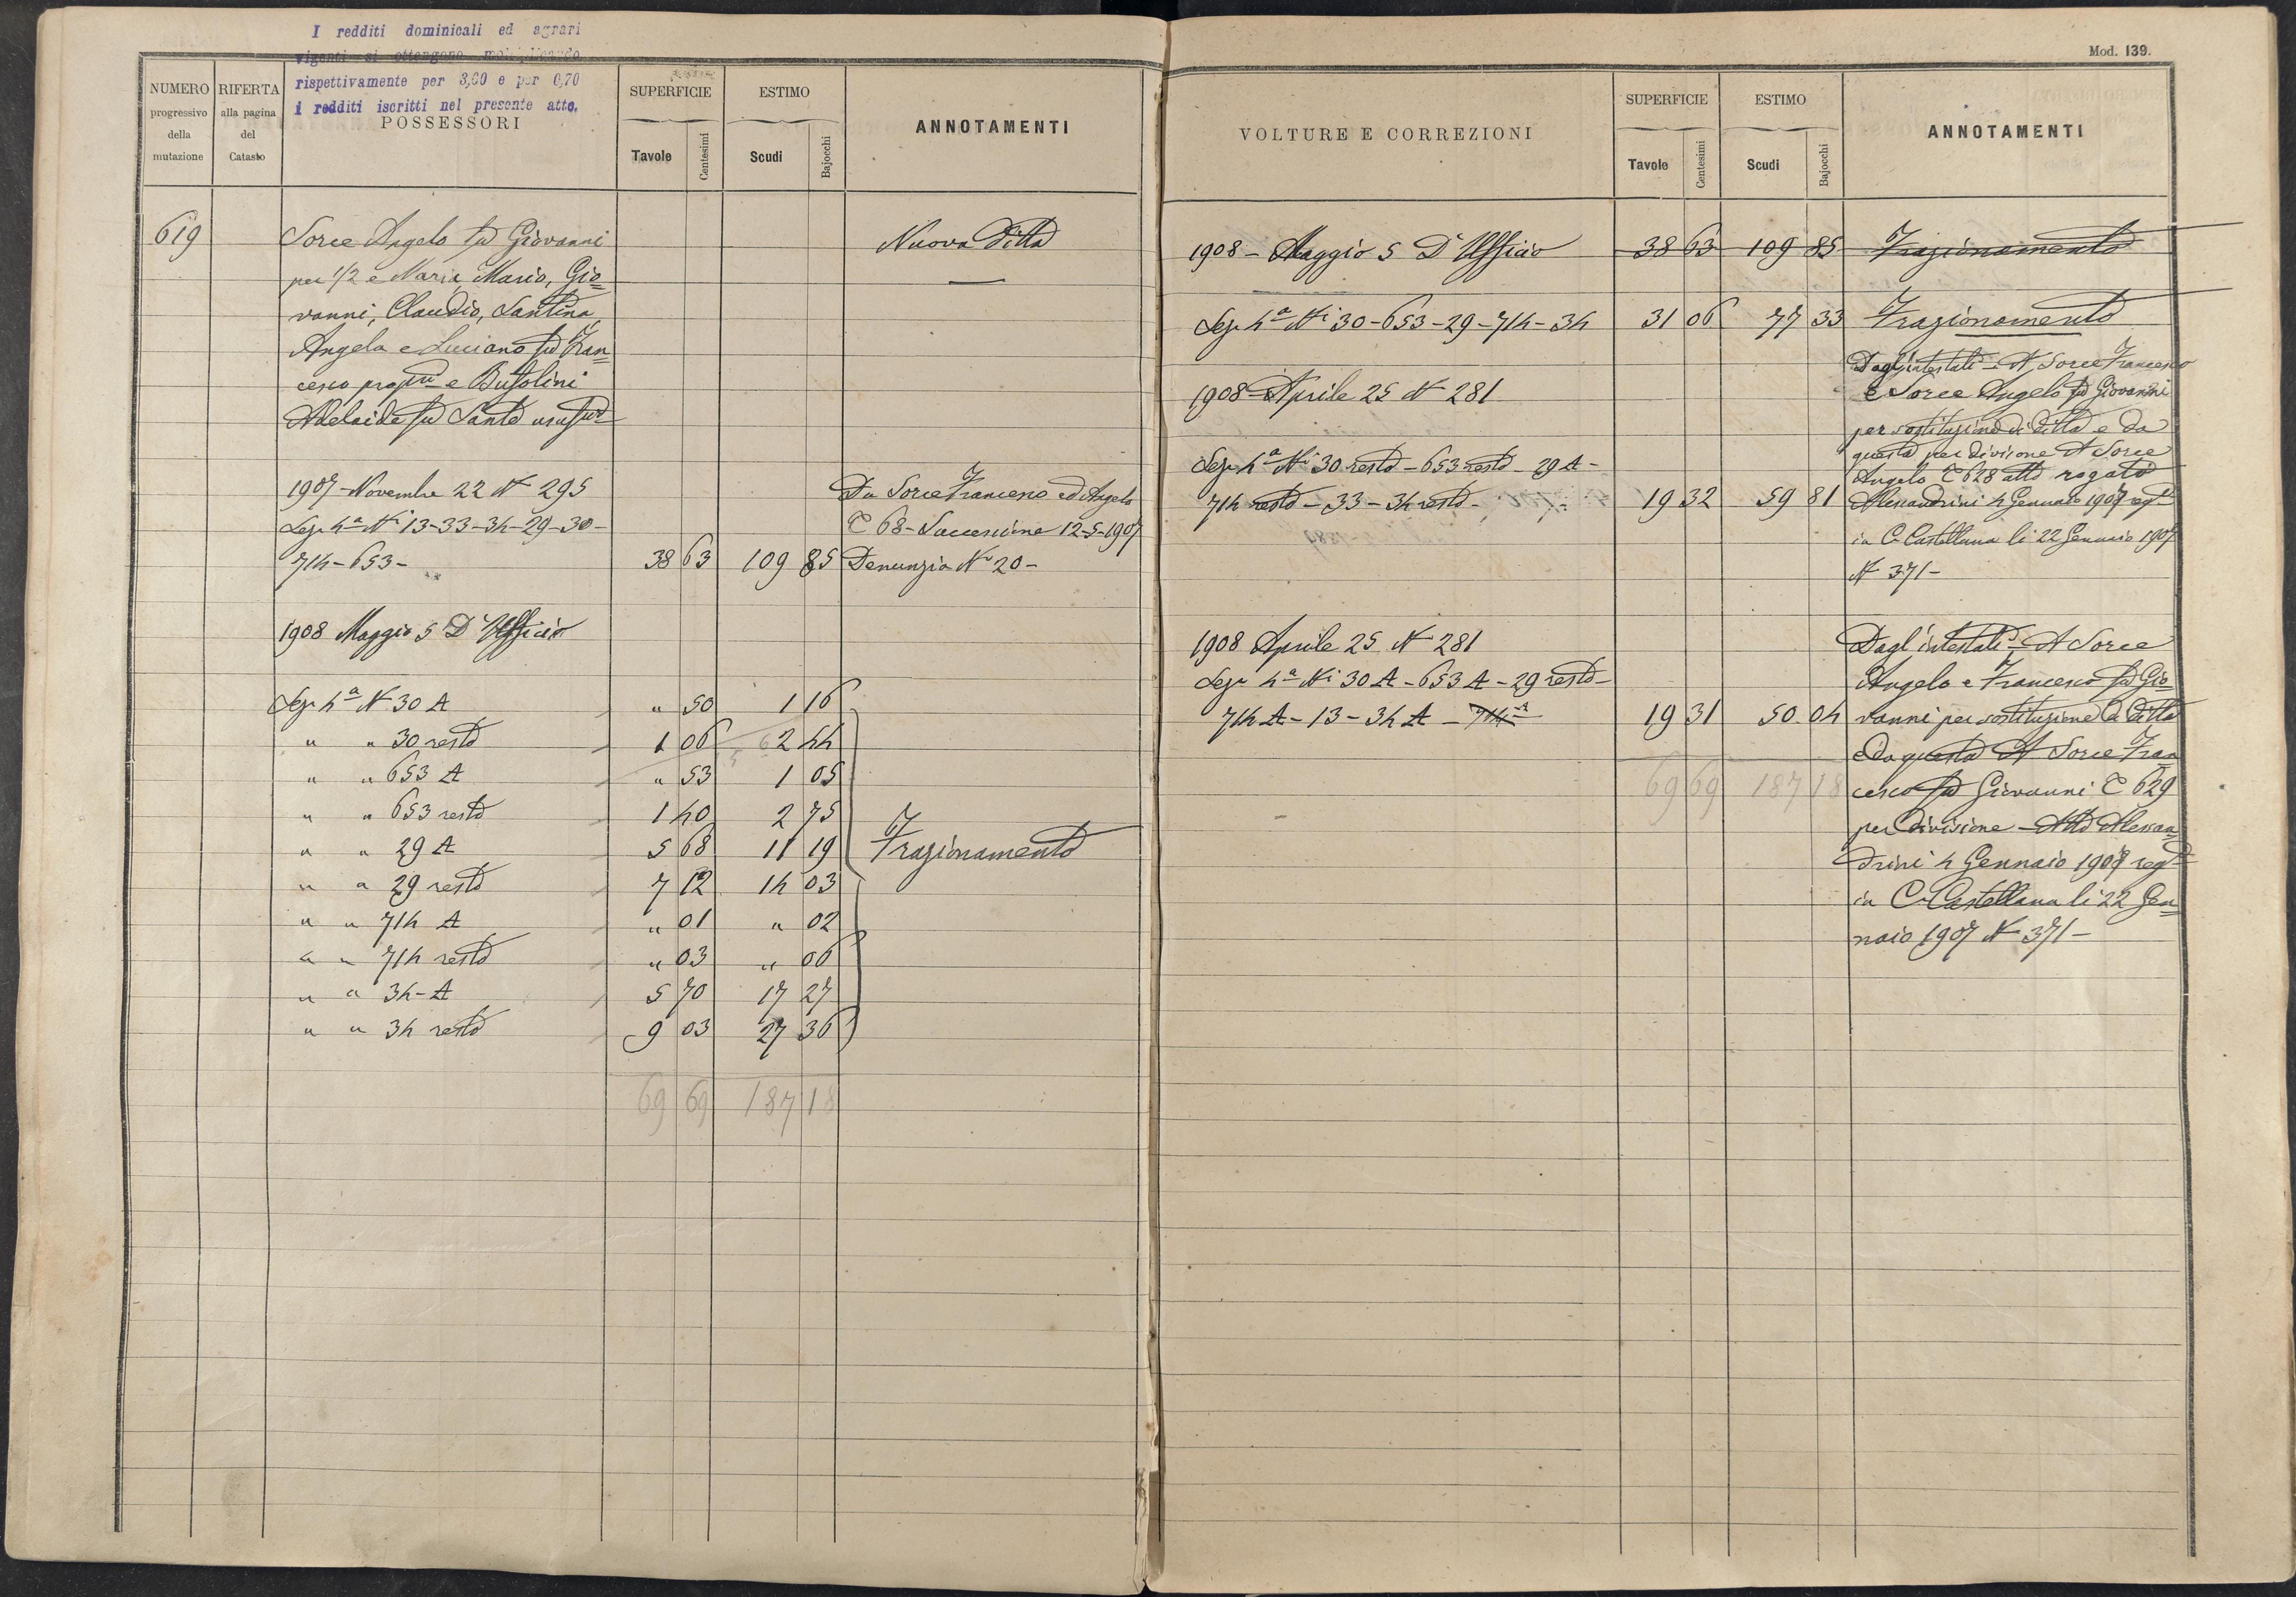 I redditi dominicali ed agrari
vigenti si ottengono moltiplicando
rispettivamente per 3,60 e per 0,70
i redditi iscritti nel presente atto.
NUMERO progressivo della mutazione
RIFERTA alla pagina del Catasto
POSSESSORI
SUPERFICIE
Tavole Centesimi
ESTIMO
Scudi Bajocchi
ANNOTAMENTI
619 Sorce Angelo fu Giovanni Nuova Ditta
per 1/2 e Maria, Mario, Gio=
vanni, Claudio, Santina,
Angela e Luciano fu Fran=
cesco propri e
Adelaide fu Santo usufr
1907 - Novembre 22 N 295 Da Sorce Francesco ed Angelo
Sez 4a Ni 13-33-34-29-30- C 68 - Successione 12-5-1907
714-653- 38 63 109 85 Denunzia N 20 -
1908 Maggio 5 D'Ufficio
Sez 4a N 30 A " 50 1 16
" " 30 resto 1 06 2 44
" " 653 A " 53 1 05
" " 653 resto 1 40 2 75
" " 29 A 5 68 11 19 Frazionamento
" " 29 resto 7 12 14 03
" " 714 A " 01 " 02
" " 714 resto " 03 " 06
" " 34-A 5 70 17 27
" " 34 resto 9 03 27 36
69 69 187 18
Mod. 139.
VOLTURE E CORREZIONI
SUPERFICIE
Tavole Centesimi
ESTIMO
Scudi Bajocchi
ANNOTAMENTI
1908 - Maggio 5 D'Ufficio 38 63 109 85 Frazionamento
Sez 4a Ni 30-653-29-714-34 31 06 77 33 Frazionamento
Dagl'intestati - A Sorce Francesco
1908 - Aprile 25 N 281 e Sorce Angelo fu Giovanni
per sostituzione di ditta e da
questa per divisione A Sorce
Sez 4a Ni 30 resto - 653 resto - 29 A - Angelo C 628 atto rogato
714 resto - 33 - 34 resto - 19 32 59 81 Alessandrini 4 Gennaio 1907 regto
in C. Castellana li 22 Gennaio 1907
N 371 -
1908 Aprile 25 N 281 Dagl'intestati - A Sorce
Sez 4a Ni 30 A - 653 A - 29 resto - Angelo e Francesco fu Gio=
714 A - 13 - 34 A - 714 A 19 31 50 04 vanni per sostituzione di ditta
e da questa A Sorce Fran
69 69 187 18 cesco fu Giovanni C 629
per divisione - Atto Alessan=
drini 4 Gennaio 1907 regto
in C. Castellana li 22 Gen=
naio 1907 N 371 -